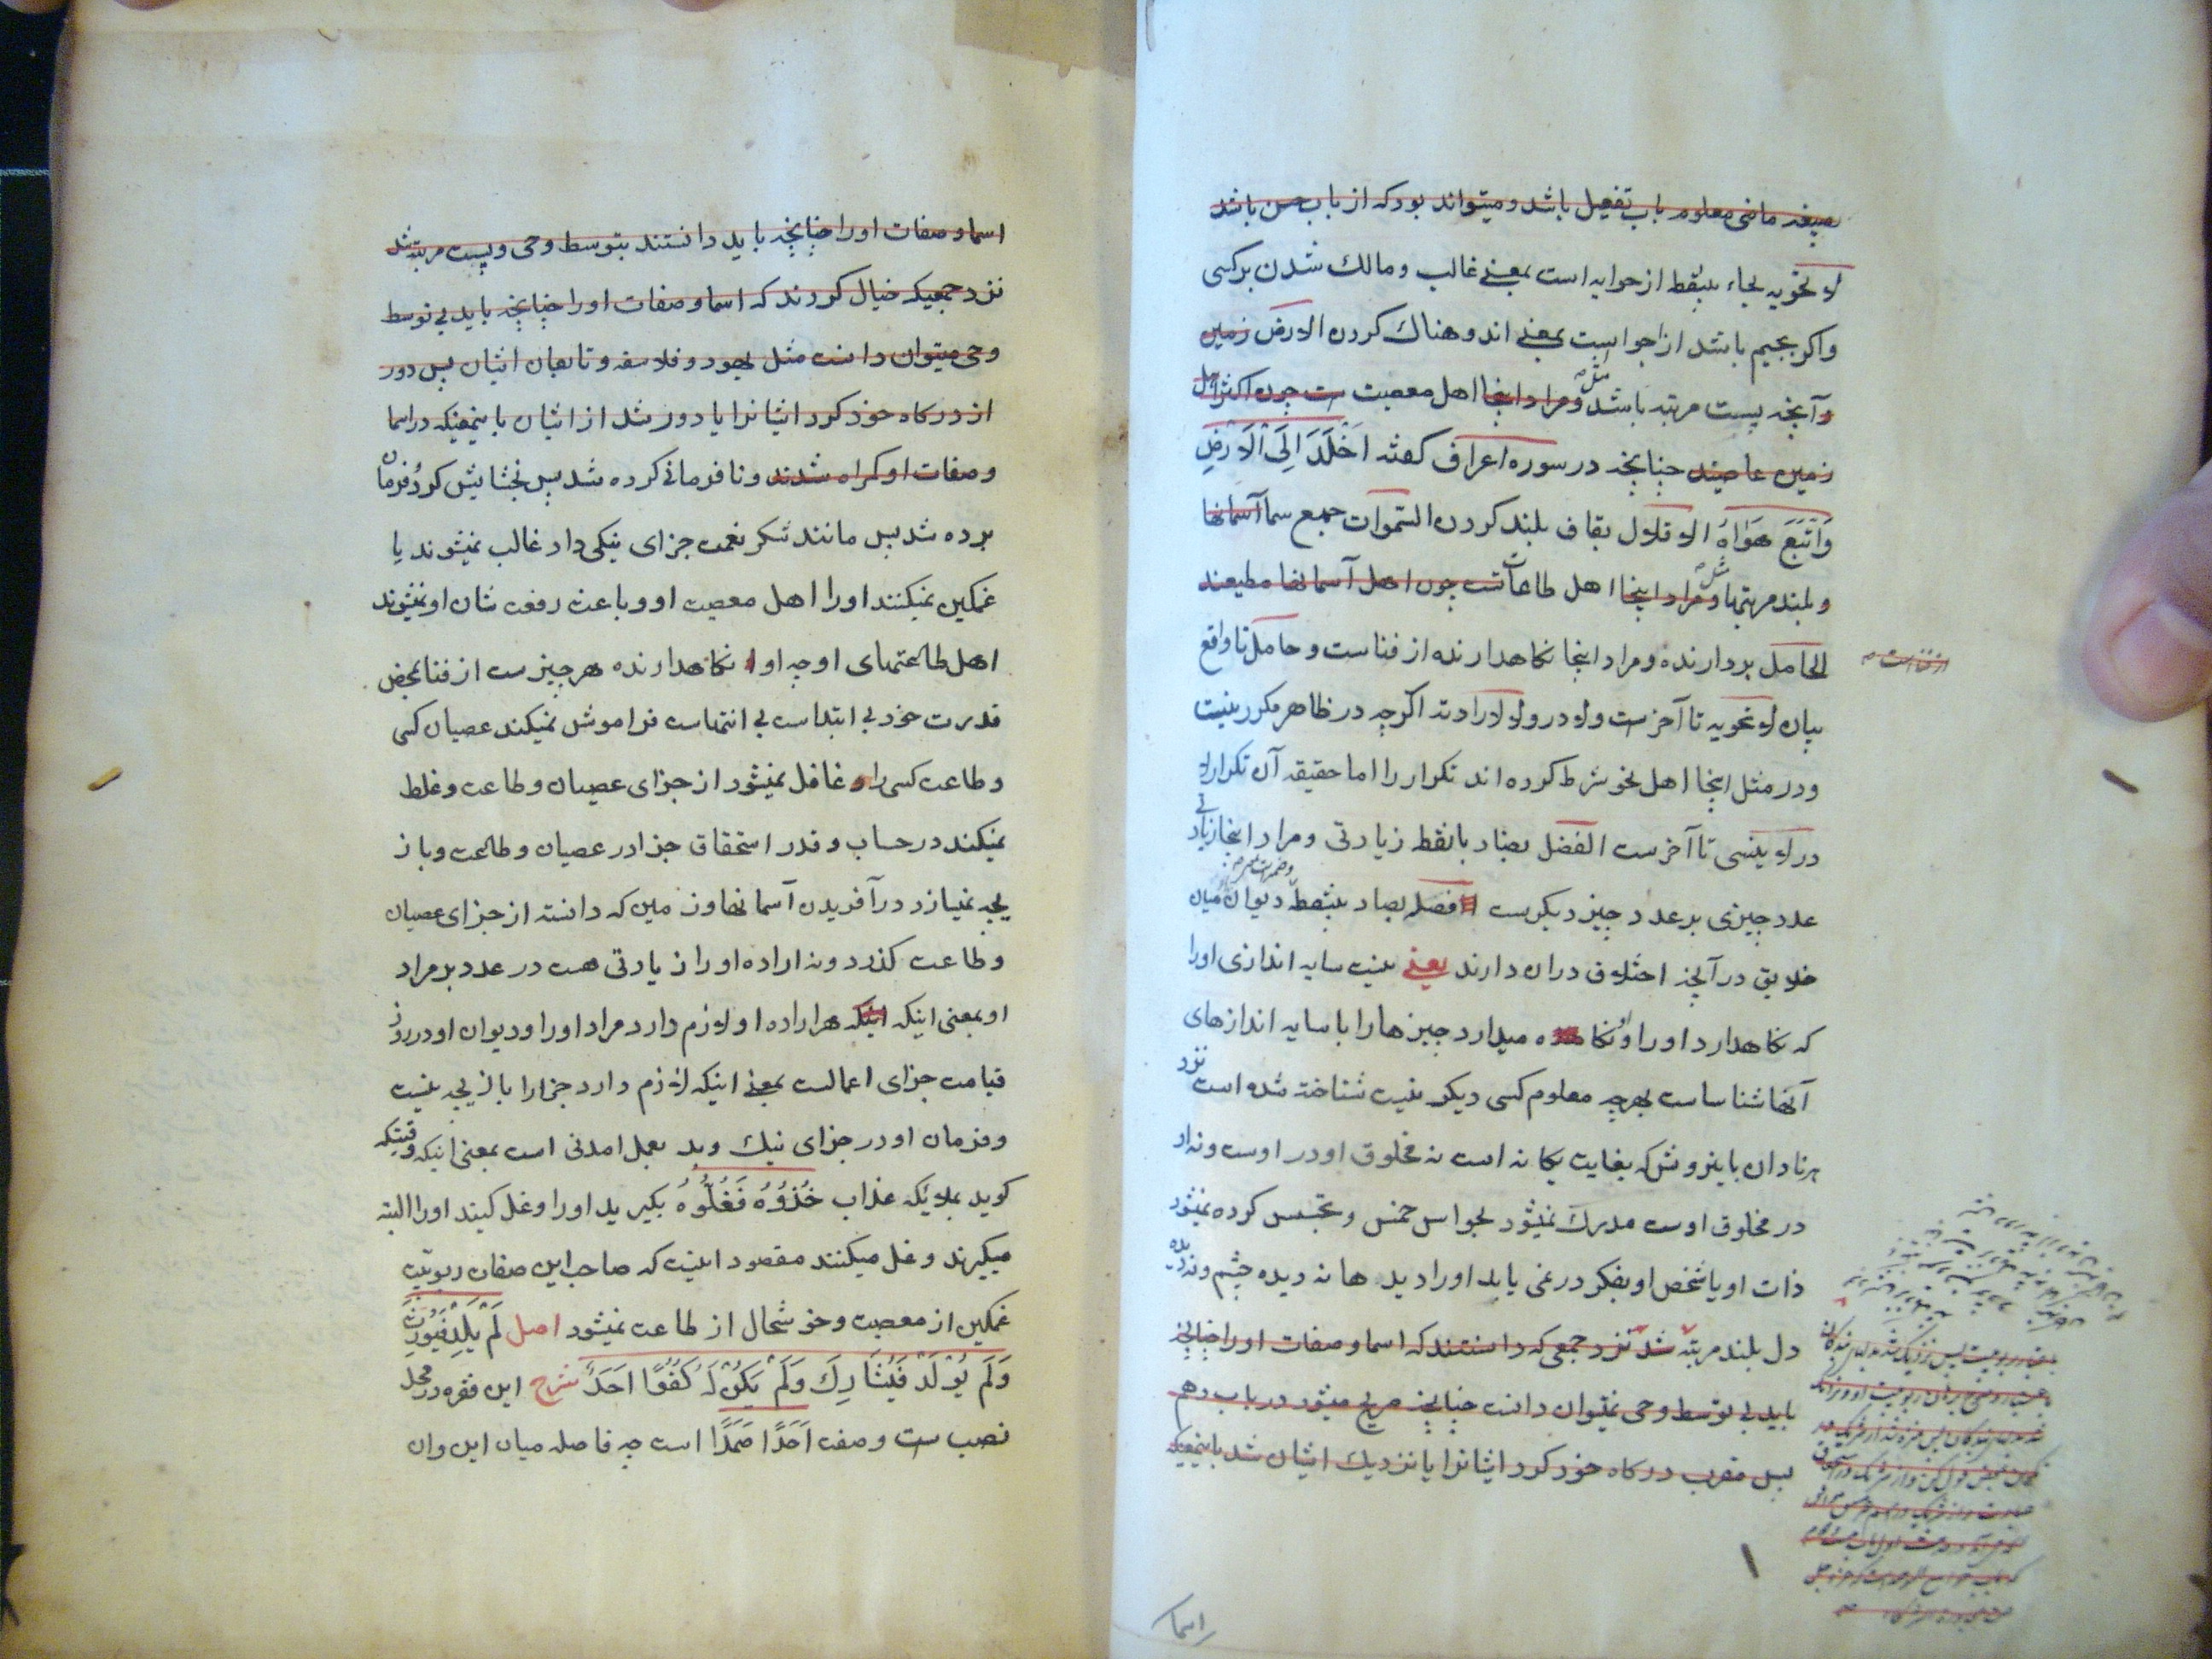 بصیغه ماضی معلوم باب تفعیل باشد و میتواند بود که از باب حسن باشد
لا تحویه بحاء بینقط از حوایه است بمعنی غالب و مالك شدن بر کسی
و اکر بجیم باشد از جوا است بمعنی اندوهناك کردن الارض زمین
و آنچه پست مرتبه باشد مثل و مراد اینجا اهل معصیت ست چون اکثر اهل
زمین عاصیند چنانچه در سوره اعراف کفته اَخْلَدَ اِلَی الْاَرْضِ
وَاتَّبَعَ هَوَاهُ الاقلال بقاف بلند کردن السموات جمع سما آسمانها
و بلند مرتبها مثل و مراد اینجا اهل طاعات ست چون اهل آسمانها مطیعند
الحامل بردارنده و مراد اینجا نکاهدارنده از فناست و حامل تا واقع
از فناست
بیان لا تحویه تا آخرست و لا در ولا لارادته اکرچه در ظاهر مکرر نیست
و در مثل اینجا اهل نحو شرط کرده اند تکرار را اما حقیقه آن تکرار لا
در لا ینسی تا آخرست الفضل بضاد بانقط زیادتی و مراد اینجا زیادتی
عدد چیزی بر عدد چیز دیکرست فصله بصاد بینقط دیوان میان
خلایق در آنچه اختلاف دران دارند یعنی نیست سایه اندازی او را
که نکاهدارد او را و او نکاه میدارد چیزها را با سایه اندازهای
آنها شناساست بهرچه معلوم کسی دیکر نیست شناخته شده است نزد
هر نادان باینروش که بغایت یکانه است نه مخلوق او در اوست و نه او
در مخلوق اوست مدرك نمیشود بحواس خمس و تجسس کرده نمیشود
ذات او یا شخص او بفکر در نمی یابد او را دیدها نه دیده چشم و نه دیده
دل بلند مرتبه شد نزد جمعی که دانستند که اسما و صفات او را چنانچه
باید بی توسط وحی نمیتوان دانست چنانچه صریح میشود در باب دهم
پس مقرب درکاه خود کرد ایشانرا یا نزدیك ایشان شد باینمعنیکه
راسما
اسما و صفات او را چنانچه باید دانستند بتوسط وحی و پست مرتبه شد
نزد جمعیکه خیال کردند که اسما و صفات او را چنانچه باید بی توسط
وحی میتوان دانست مثل یهود و فلاسفه و تابعان ایشان پس دور
از درکاه خود کرد ایشانرا یا دور شد از ایشان باینمعنیکه در اسما
و صفات او کمراه شدند و نافرمانی کرده شد پس بخشایش کرد و فرمان
برده شد پس مانند شکر نعمت جزای نیکی داد غالب نمیشوند یا
غمکین نمیکنند او را اهل معصیت او و باعث رفعت شان او نمیشوند
اهل طاعتهای او چه او نکاهدارنده هر چیزست از فنا بمحض
قدرت خود بی ابتداست بی انتهاست فراموش نمیکند عصیان کسی
و طاعت کسی را و غافل نمیشود از جزای عصیان و طاعت و غلط
نمیکند در حساب و قدر استحقاق جزا در عصیان و طاعت و باز
یچه نمیبازد در آفریدن آسمانها و زمین که دانسته از جزای عصیان
و طاعت کذرد و نه اراده او را زیادتی هست در عدد بر مراد
او بمعنی اینکه هر اراده او لازم دارد مراد او را و دیوان او در روز
قیامت جزای اعمالست بمعنی اینکه لازم دارد جزا را بازیچه نیست
و فرمان او در جزای نیك و بد بعمل امدنی است بمعنی اینکه وقتیکه
کوید بملایکه عذاب خُذُوُهُ فَغُلُّوُهُ بکیرید او را و غل کنید او را البته
میکیرند و غل میکنند مقصود اینست که صاحب این صفات ربوبیت
غمکین از معصیت و خوشحال از طاعت نمیشود اصل لَمْ یَلِدْ فَیُورَثَ
وَلَمْ یُوْلَدْ فَیُشَارِكَ وَلَمْ یَکُنْ لَهُ کُفُوًا اَحَدٌ شرح این فقره در محل
نصب ست و صفت اَحَدًا صَمَدًا است چه فاصله میان این وان